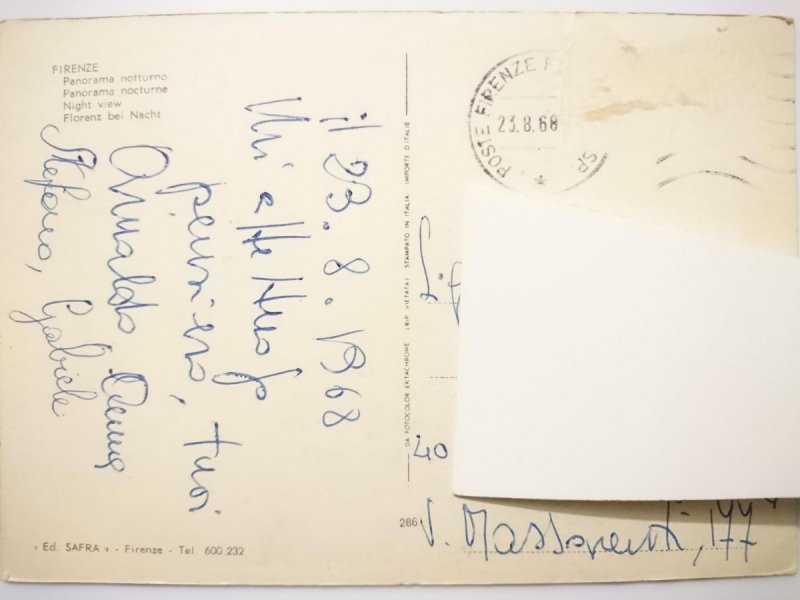 FIRENZE
Panorama notturno
Panorama nocturne
Night view
Florenz bei Nacht
il 23.8.1968
Un affettuoso
pensiero, tuoi
Arnaldo
Stefano, Gabriele
DA FOTOCOLOR EKTACHROME (RIP. VIETATA) STAMPATO IN ITALIA IMPORTE D'ITALIE
POSTE FIRENZE F
23.8.68
SP
40
286
V. Massarenti, 177
« Ed. SAFRA » - Firenze - Tel. 600.232